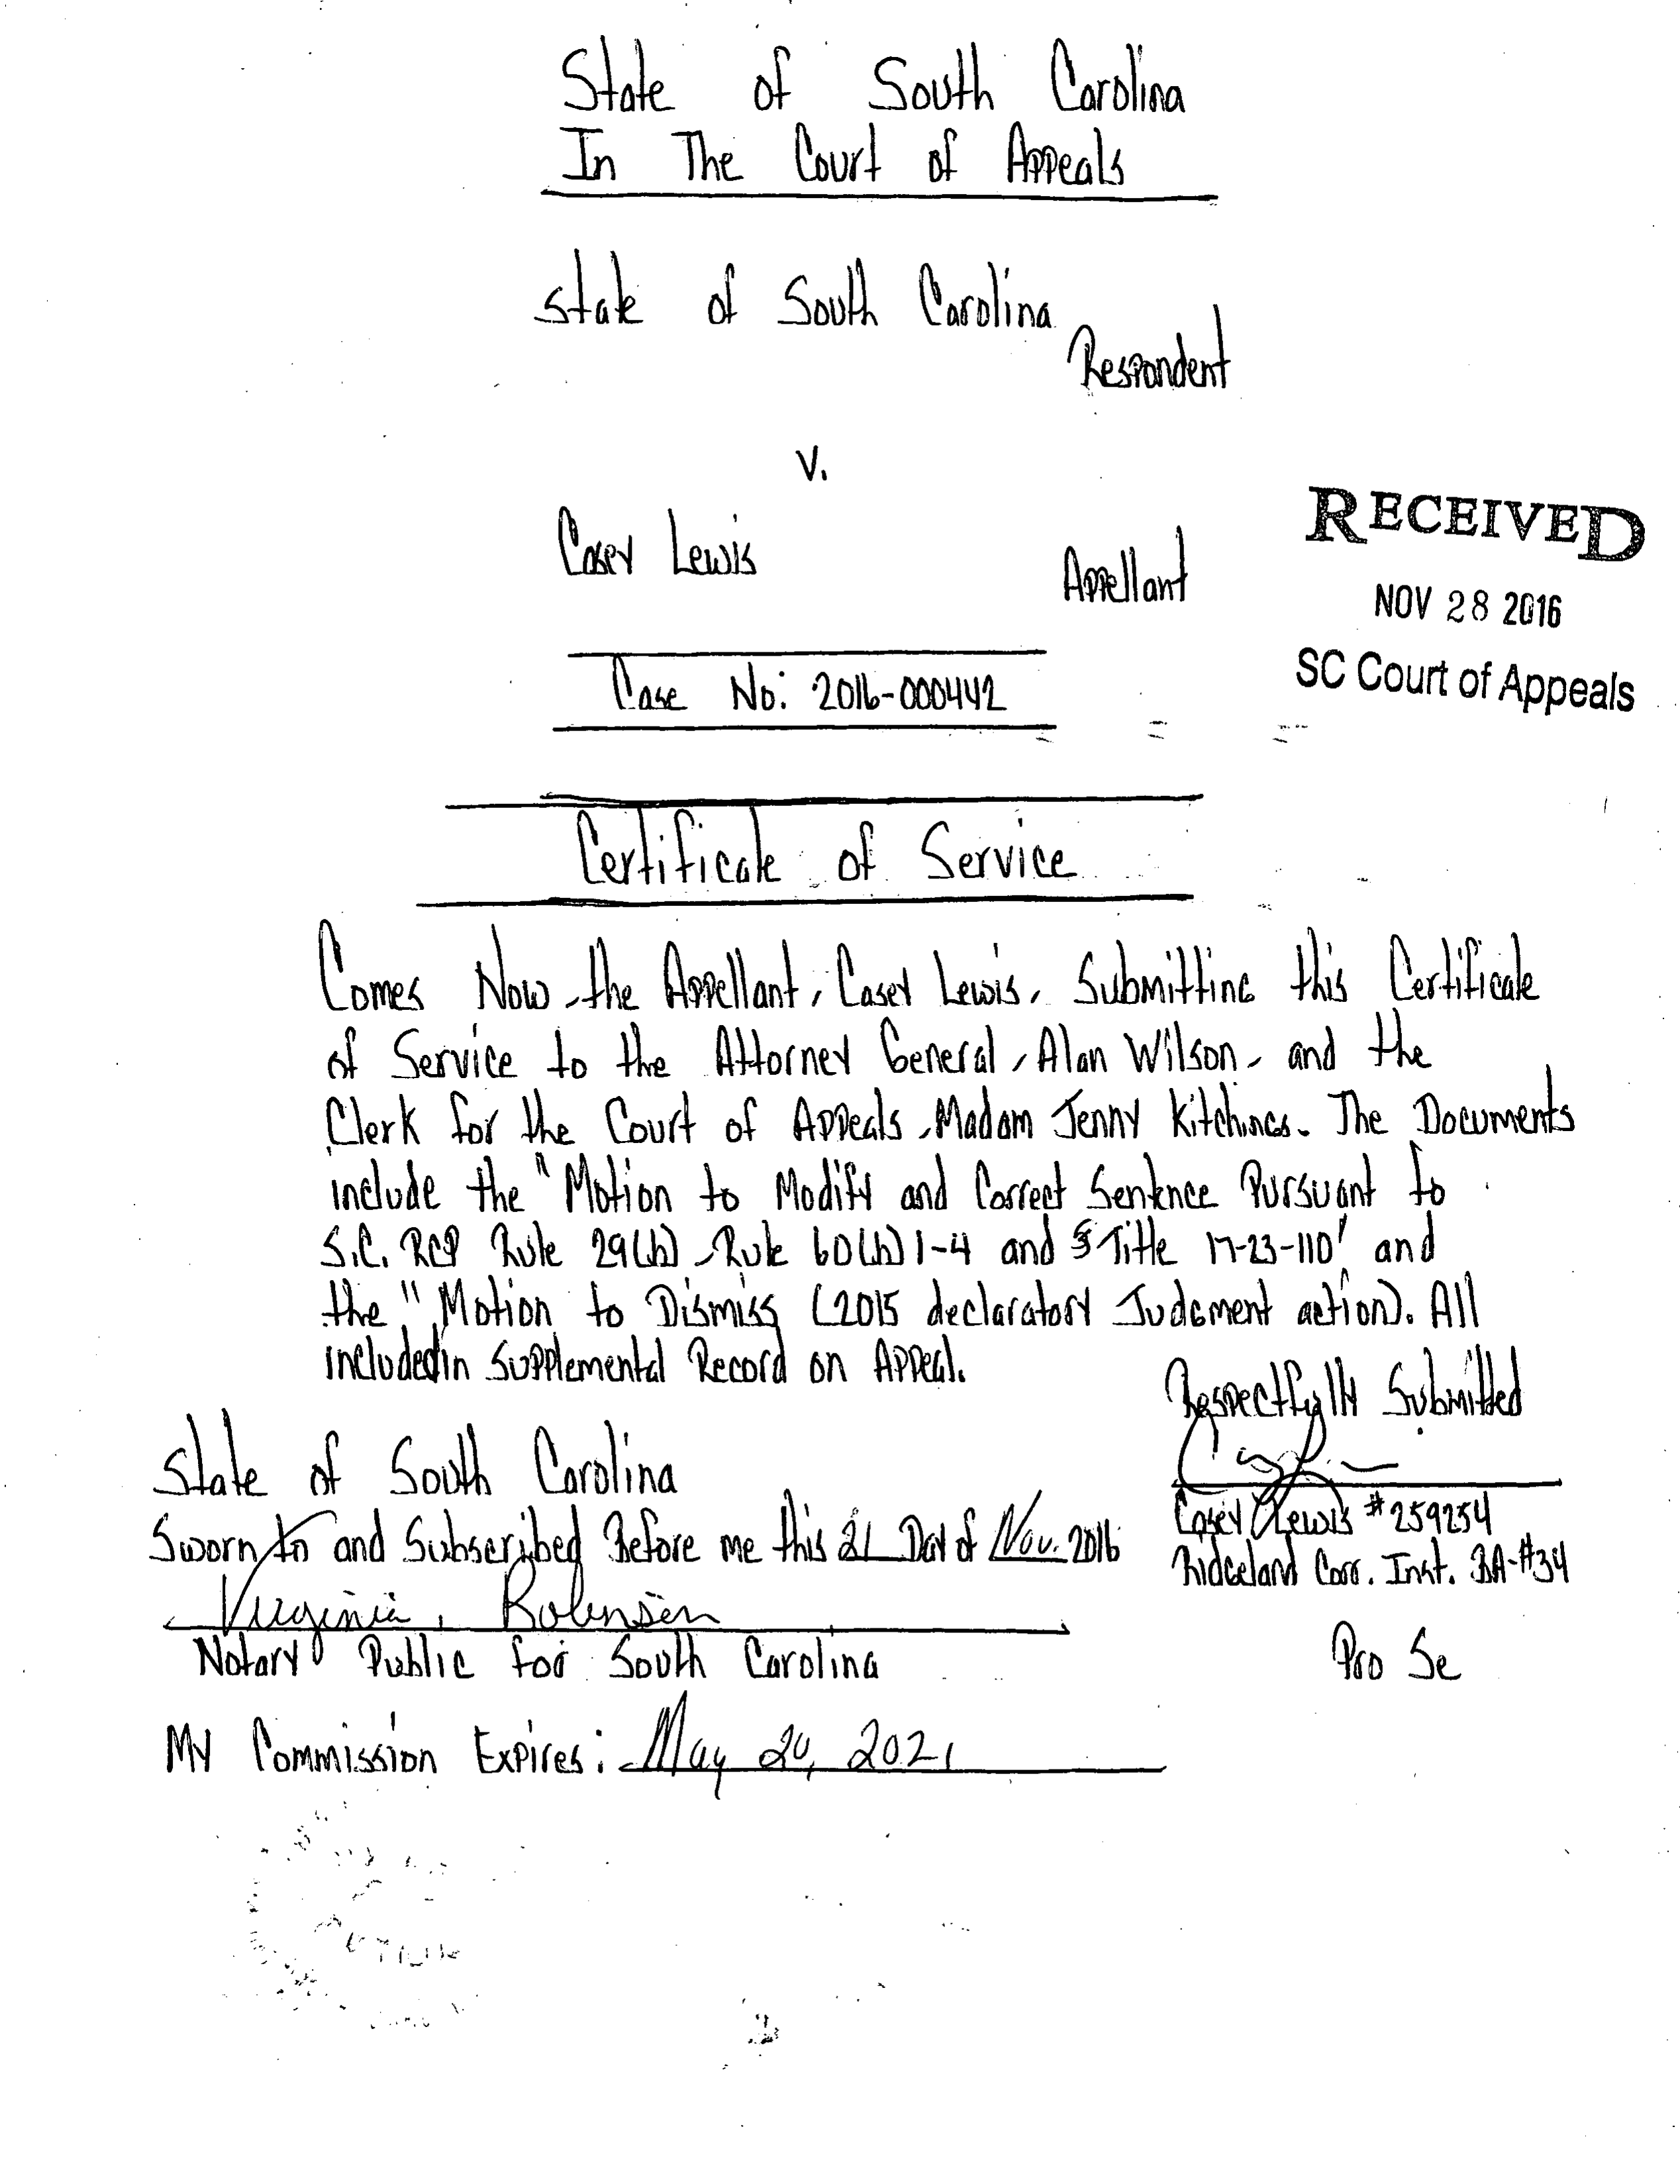 State of South Carolina
In The Court of Appeals
State of South Carolina
Respondent
V.
Casey Lewis
Appellant
RECEIVED
NOV 28 2016
SC Court of Appeals
Case No: 2016-000442
Certificate of Service
Comes Now, the Appellant, Casey Lewis, Submitting this Certificate
of Service to the Attorney General, Alan Wilson, and the
Clerk for the Court of Appeals, Madam Jenny Kitchings. The Documents
include the "Motion to Modify and Correct Sentence Pursuant to
S.C. RCP Rule 29(b), Rule 60(b)1-4 and § Title 17-23-110" and
the "Motion to Dismiss (2015 declaratory Judgment action). All
included in Supplemental Record on Appeal.
Respectfully Submitted
Casey Lewis #259254
Ridgeland Corr. Inst. BA-#34
Pro Se
State of South Carolina
Sworn to and Subscribed Before me this 21 Day of Nov. 2016
Virginia Robinson
Notary Public for South Carolina
My Commission Expires: May 20, 2021